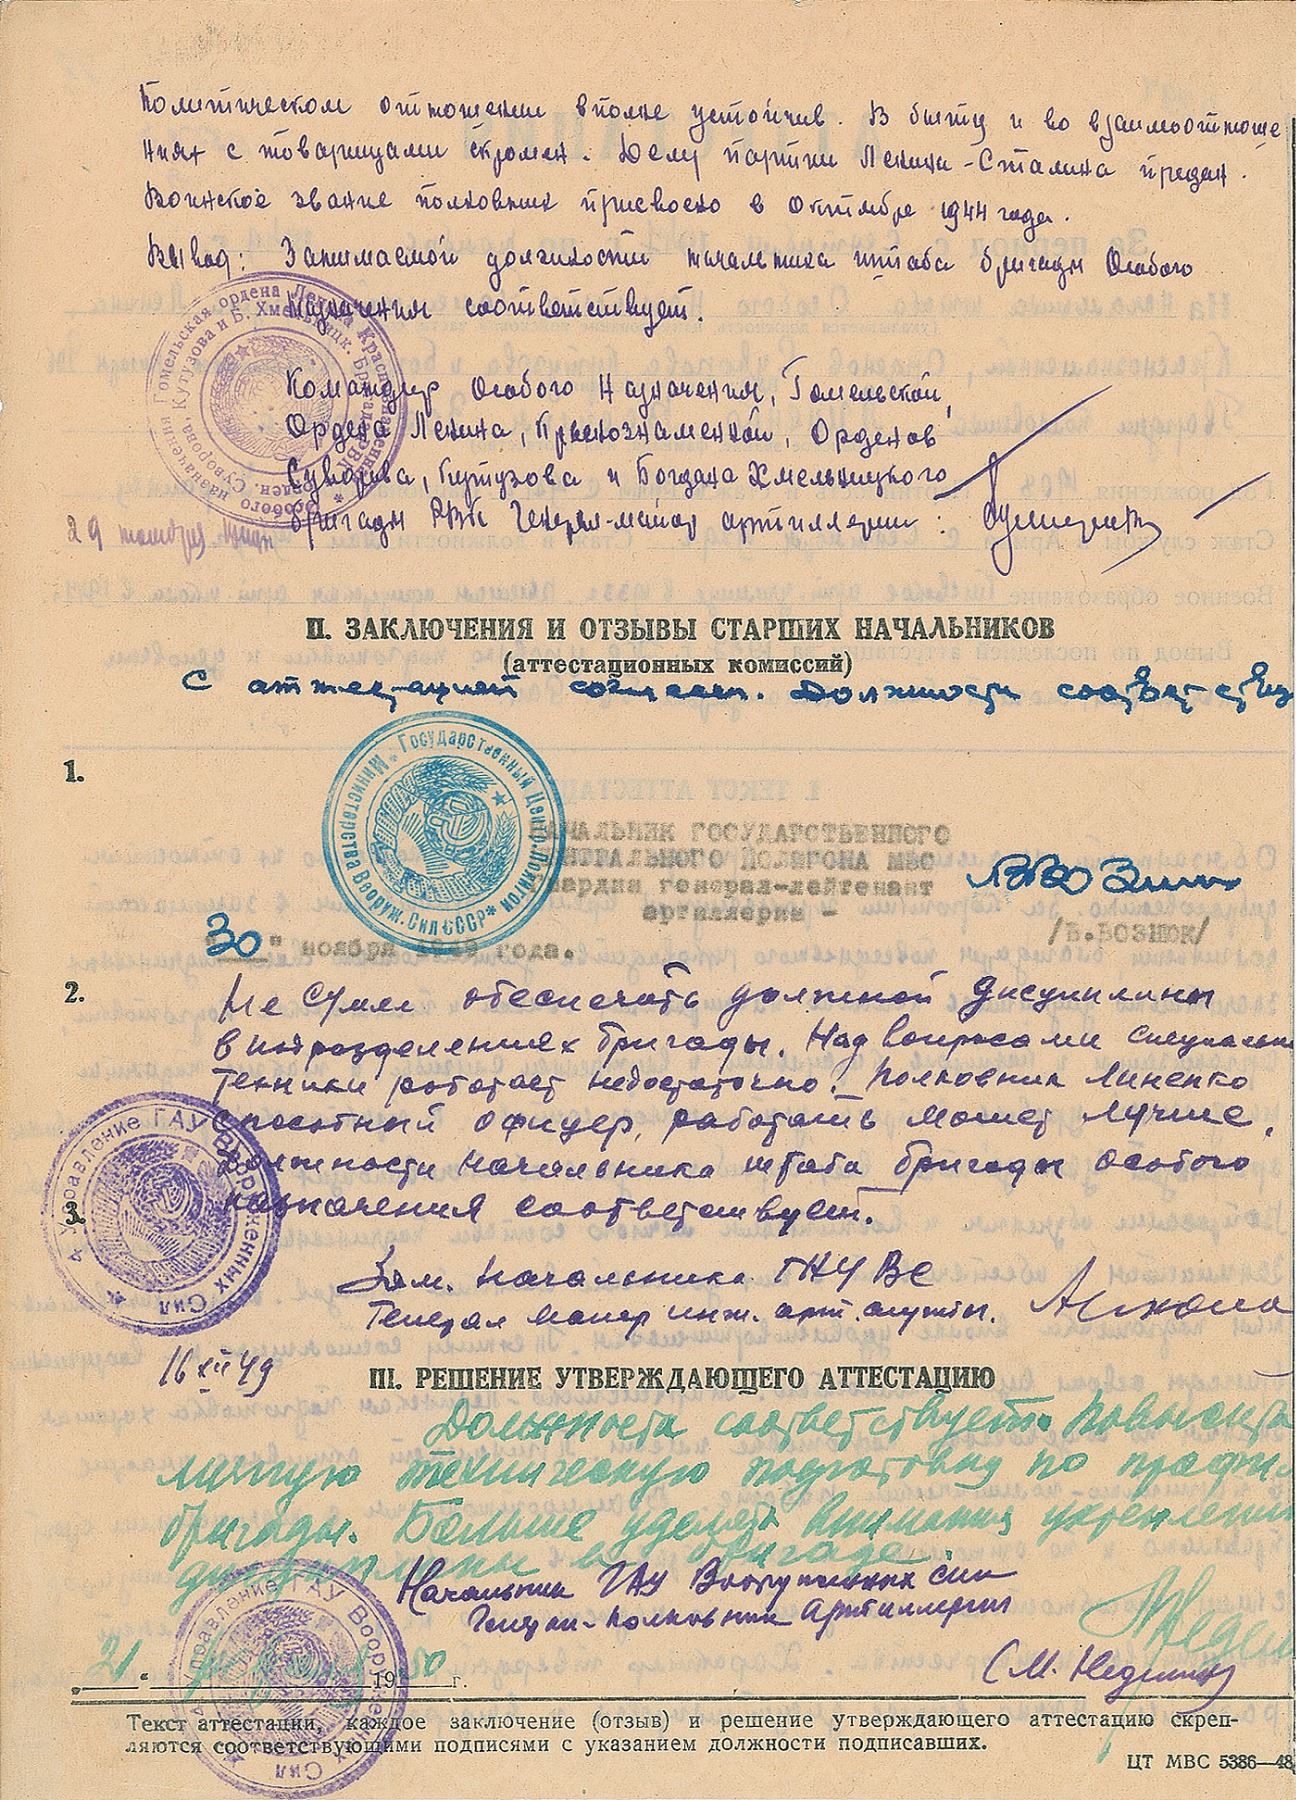 Политическом отношении вполне устойчив. В быту и во взаимоотноше
ниях с товарищами скромен. Делу партии Ленина-Сталина предан.
Воинское звание полковник присвоено в октябре 1944 года.
Вывод: Занимаемой должности начальника штаба бригады Особого
назначения соответствует.
Командир Особого Назначения, Гомельской,
Ордена Ленина, Краснознаменной, Орденов
Суворова, Кутузова и Богдана Хмельницкого
бригады РВК Генерал-майор артиллерии:
29 ноября
II. ЗАКЛЮЧЕНИЯ И ОТЗЫВЫ СТАРШИХ НАЧАЛЬНИКОВ
(аттестационных комиссий)
С аттестацией согласен. Должности соответствует
1.
Государственный Центр. Полигон
Министерства Вооруж. Сил СССР
НАЧАЛЬНИК ГОСУДАРСТВЕННОГО
ЦЕНТРАЛЬНОГО ПОЛИГОНА МВС
гвардии генерал-лейтенант
артиллерии -
/В.ВОЗНЮК/
"30" ноября 1949 года.
2.
Не сумел обеспечить должной дисциплины
в подразделениях бригады. Над вопросами специальн
техники работает недостаточно. Полковник Линенко
способный офицер, работать может лучше.
Должности начальника штаба бригады особого
назначения соответствует.
3.
4 Управление ГАУ Вооруженных Сил
Зам. начальника ГАУ ВС
Генерал майор инж. арт. службы.
16 XII 49
III. РЕШЕНИЕ УТВЕРЖДАЮЩЕГО АТТЕСТАЦИЮ
Должности соответствует. Повысить
личную техническую подготовку по профил
бригады. Больше уделять внимания укреплени
дисциплины в бригаде.
Начальник ГАУ Вооруженных Сил
Генерал-полковник Артиллерии
(М. Неделин)
4 Управление ГАУ Вооруженных Сил
"21" 1950 г.
Текст аттестации, каждое заключение (отзыв) и решение утверждающего аттестацию скреп-
ляются соответствующими подписями с указанием должности подписавших.
ЦТ МВС 5386—48